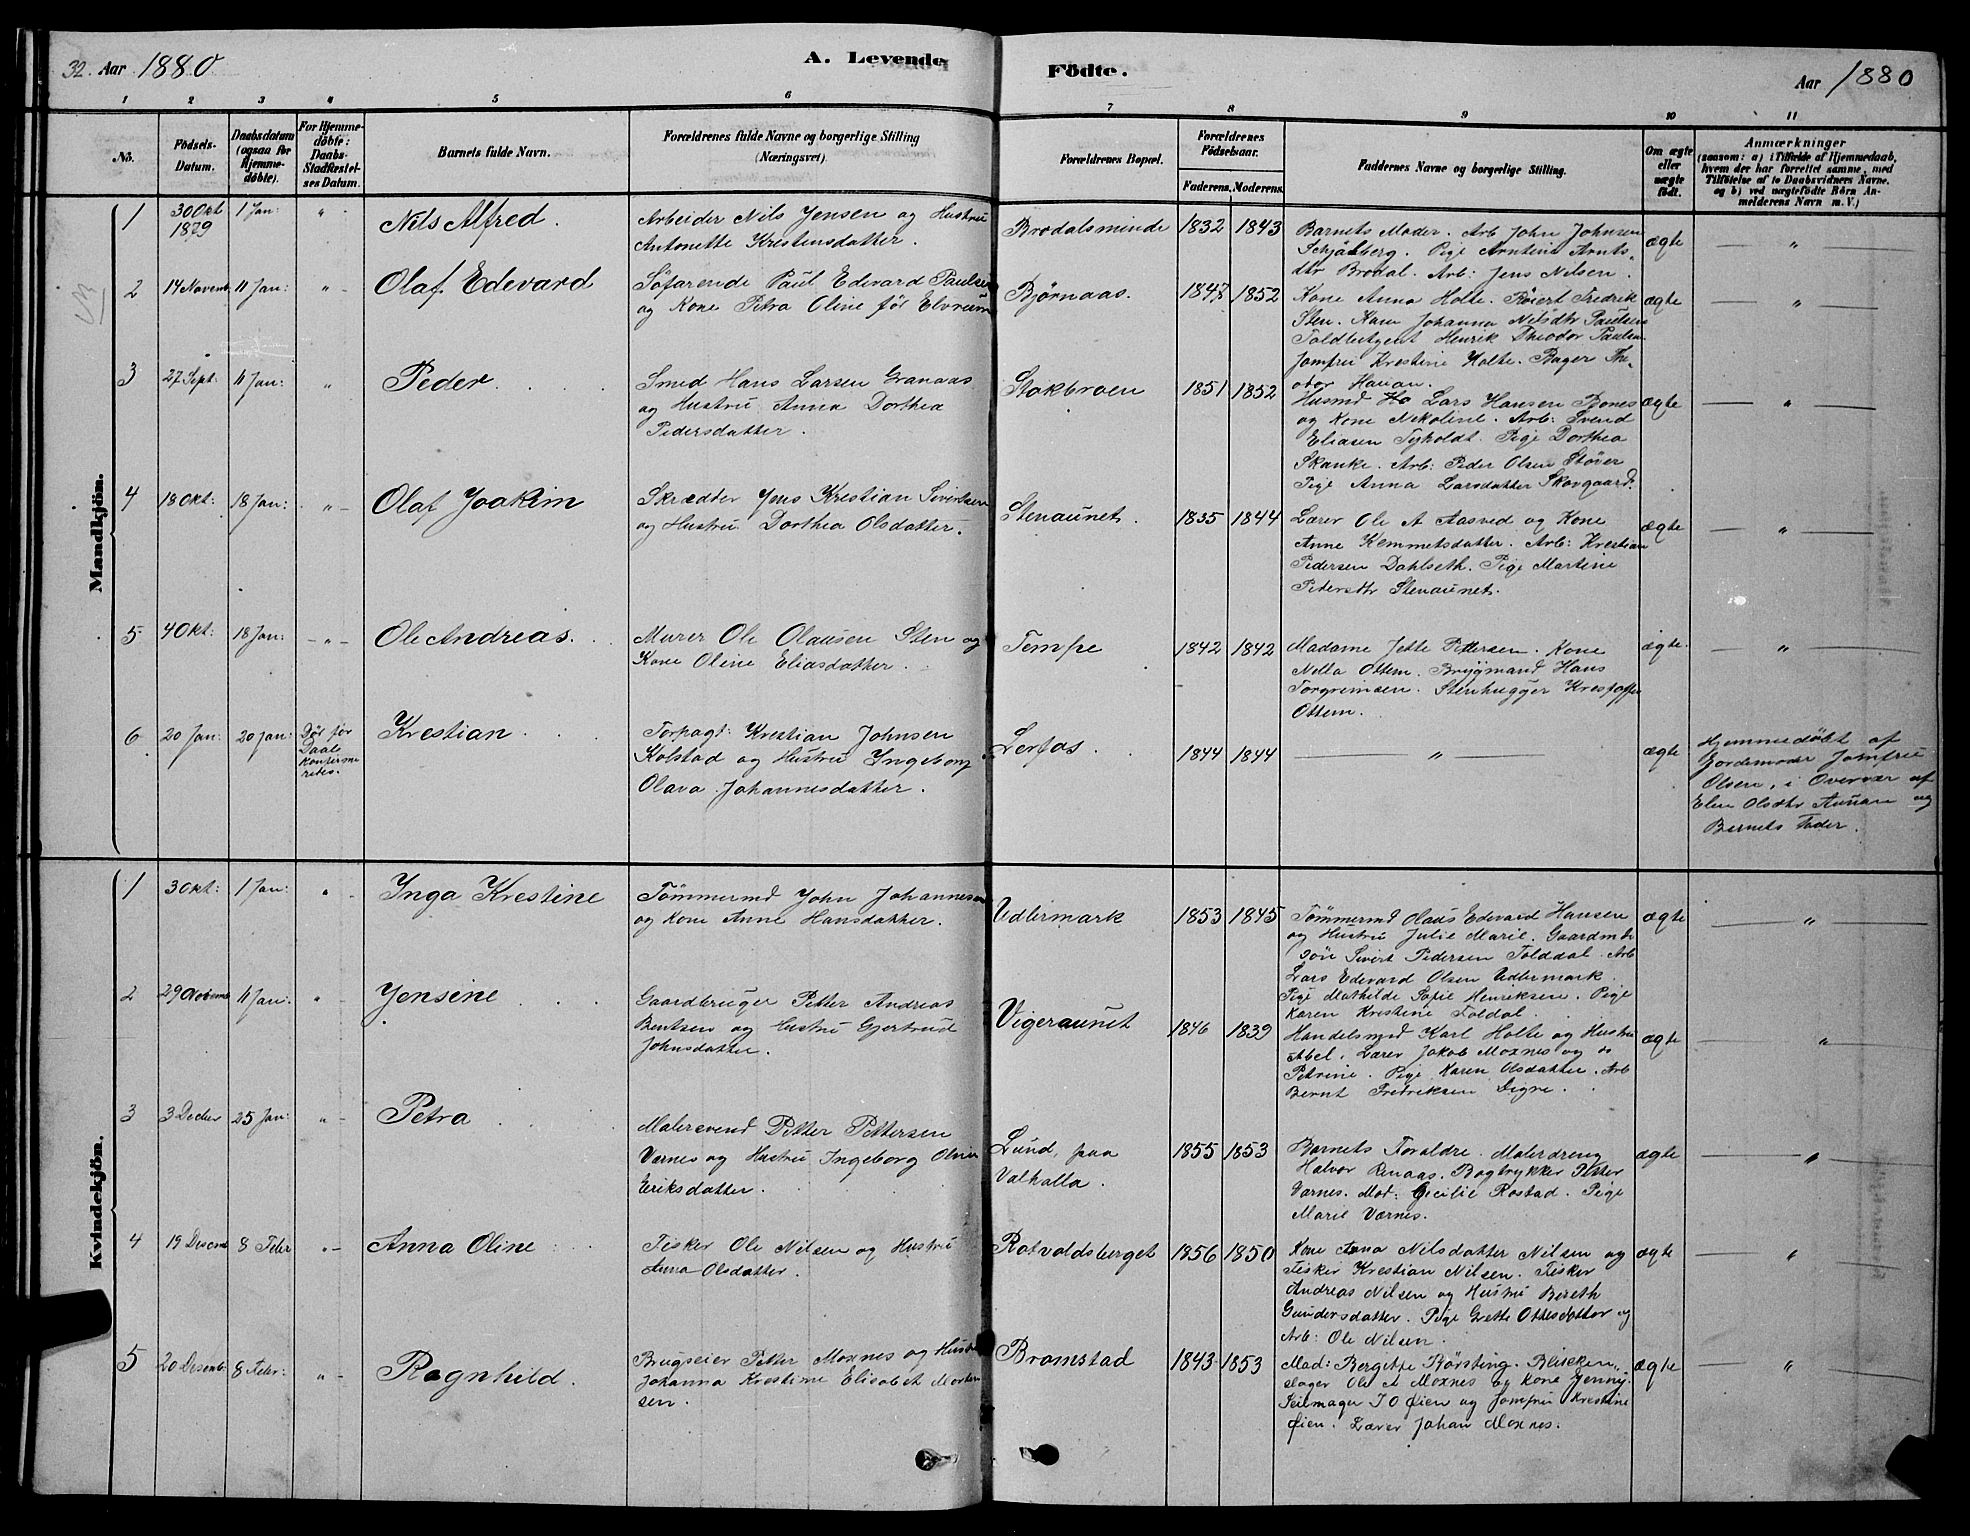 32. Aar 1880
A. Levende Födte.
Aar 1880
1 2 3 4 5 6 7 8 9 10 11
No.
Födsels-Datum.
Daabsdatum (ogsaa for Hjemme-döbte).
For Hjemme-döbte: Daabs-Stadfæstel-ses Datum.
Barnets fulde Navn.
Forældrenes fulde Navne og borgerlige Stilling (Næringsvei).
Forældrenes Bopæl.
Forældrenes Födselsaar.
Faderens. Moderens.
Faddernes Navne og borgerlige Stilling.
Om ægte eller uægte født.
Anmærkninger
(saasom: a) i Tilfælde af Hjemmedaab, hvem der har forrettet samme, med Tilföielse af to Daabsvidners Navne, og b) ved uægtefödte Börn An-melderens Navn m. V.)
Mandkjön.
1 30 Okt 1879 1 Jan: " Nils Alfred.
Arbeider Nils Jensen og Hustru
Antonette Kristensdatter.
Brodalsminde 1832 1843
Barnets Moder. Arb John Johnsen
Schjälberg. Pige Arntine Arnts-
dtr Brodal. Arb: Jens Nilsen.
ægte "
2 14 Novemb 11 Jan: " Olaf Edevard
Söfarende Paul Edevard Paulsen
og Kone Petra Oline før Elvrum
Bjørnaas. 1847 1852
Kone Anna Holte. Röiert Fredrik
Sten. Kone Johanna Nilsdtr Paulsen
Toldbetjent Henrik Theodor Paulsen
Jomfru Krestine Holte. Bager The-
odor Hanan.
ægte "
3 27 Sept: 11 Jan: " Peder.
Smed Hans Larsen Granaas
og Hustru Anna Dorthea
Pedersdatter.
Stokbroen 1851 1852
Husmd Lars Hansen Bones
og Kone Nekoline. Arb: Svend
Eliasen Tyholdt. Pige Dorthea
Skanke. Arb: Peder Olsen Støver
Pige Anna Larsdatter Skovgaard.
ægte "
4 18 Okt: 18 Jan: " Olaf Joakim
Skrædder Jens Krestian Sivertsen
og Hustru Dorthea Olsdatter.
Stenaunet. 1835 1844
Lærer Ole A Aasved og Kone
Anne Kemmetsdatter. Arb: Krestian
Pedersen Dahlseth. Pige Martine
Pedersdtr Stenaunet.
ægte "
5 4 Okt: 18 Jan: " Ole Andreas.
Murer Ole Olausen Sten og
Kone Oline Eliasdatter.
Tempe 1842 1842
Madame Jette Pettersen. Kone
Nella Ottem. Bryggmand Hans
Torgrimsen. Stenhugger Krestoffer
Ottem.
ægte. "
6 20 Jan: 20 Jan: Død før Daab konfirmeredes. Krestian
Forpagt: Krestian Johnsen
Kolstad og Hustru Ingeborg
Olava Johannesdatter.
Lerfos. 1844 1844 " ægte
Hjemmedøbt af
Jordemoder Jomfru
Olsen, i Overvær af
Elen Olsdtr Aunan og
Barnets Fader.
Kvindekjön.
1 3 Okt: 1 Jan: " Inga Krestine
Tömmermd John Johannesen
og Kone Anne Hansdatter.
Udlermark 1853 1845
Tömmermd Olaus Edevard Hansen
og Hustru Julie Marie. Gaardmds
sön Sivert Pedersen Tolddal. Arb
Lars Edevard Olsen Udlermark.
Pige Mathilde Sofie Henriksen. Pige
Karen Krestine Toldal.
ægte "
2 29 Novemb 11 Jan. " Jensine
Gaardbruger Petter Andreas
Bentsen og Hustru Gjertrud
Johnsdatter.
Vigeraunet 1846 1839
Handelsmd Karl Holte og Hustru
Abel. Lærer Jakob Moxnes og do
Petrine. Pige Karen Olsdatter. Arb
Bernt Fredriksen Digre.
ægte "
3 3 Decbr 25 Jan: " Petra
Malersvend Petter Pettersen
Værnes og Hustru Ingeborg Oline
Eriksdatter.
Lund, paa
Valhalla. 1855 1853
Barnets Foraldre. Malerdreng
Halvor Renaas. Bogtrykker Petter
Værnes. Mad: Cecilie Rostad. Pige
Marie Værnes.
ægte "
4 19 Desemb 8 Febr " Anna Oline
Fisker Ole Nilsen og Hustru
Anna Olsdatter.
Rotvoldsberget 1856 1850
Kone Anna Nilsdatter Nilsen og
Fisker Krestian Nilsen. Fisker
Andreas Nilsen og Hustru Bereth
Gundersdatter. Pige Grette Ottesdatter og
Arb: Ole Nilsen.
ægte "
5 20 Desemb 8 Febr: " Ragnhild.
Brugseier Petter Moxnes og Hustru
Johanna Krestine Elisabet Morten
sen.
Bromstad 1843 1853
Mad: Bergette Rørsting. Blikken-
slager Ole A Moxnes og Kone Jenny.
Feilmager I O Øien og Jomfru Krestine
Øien. Lærer Johan Moxnes.
ægte "